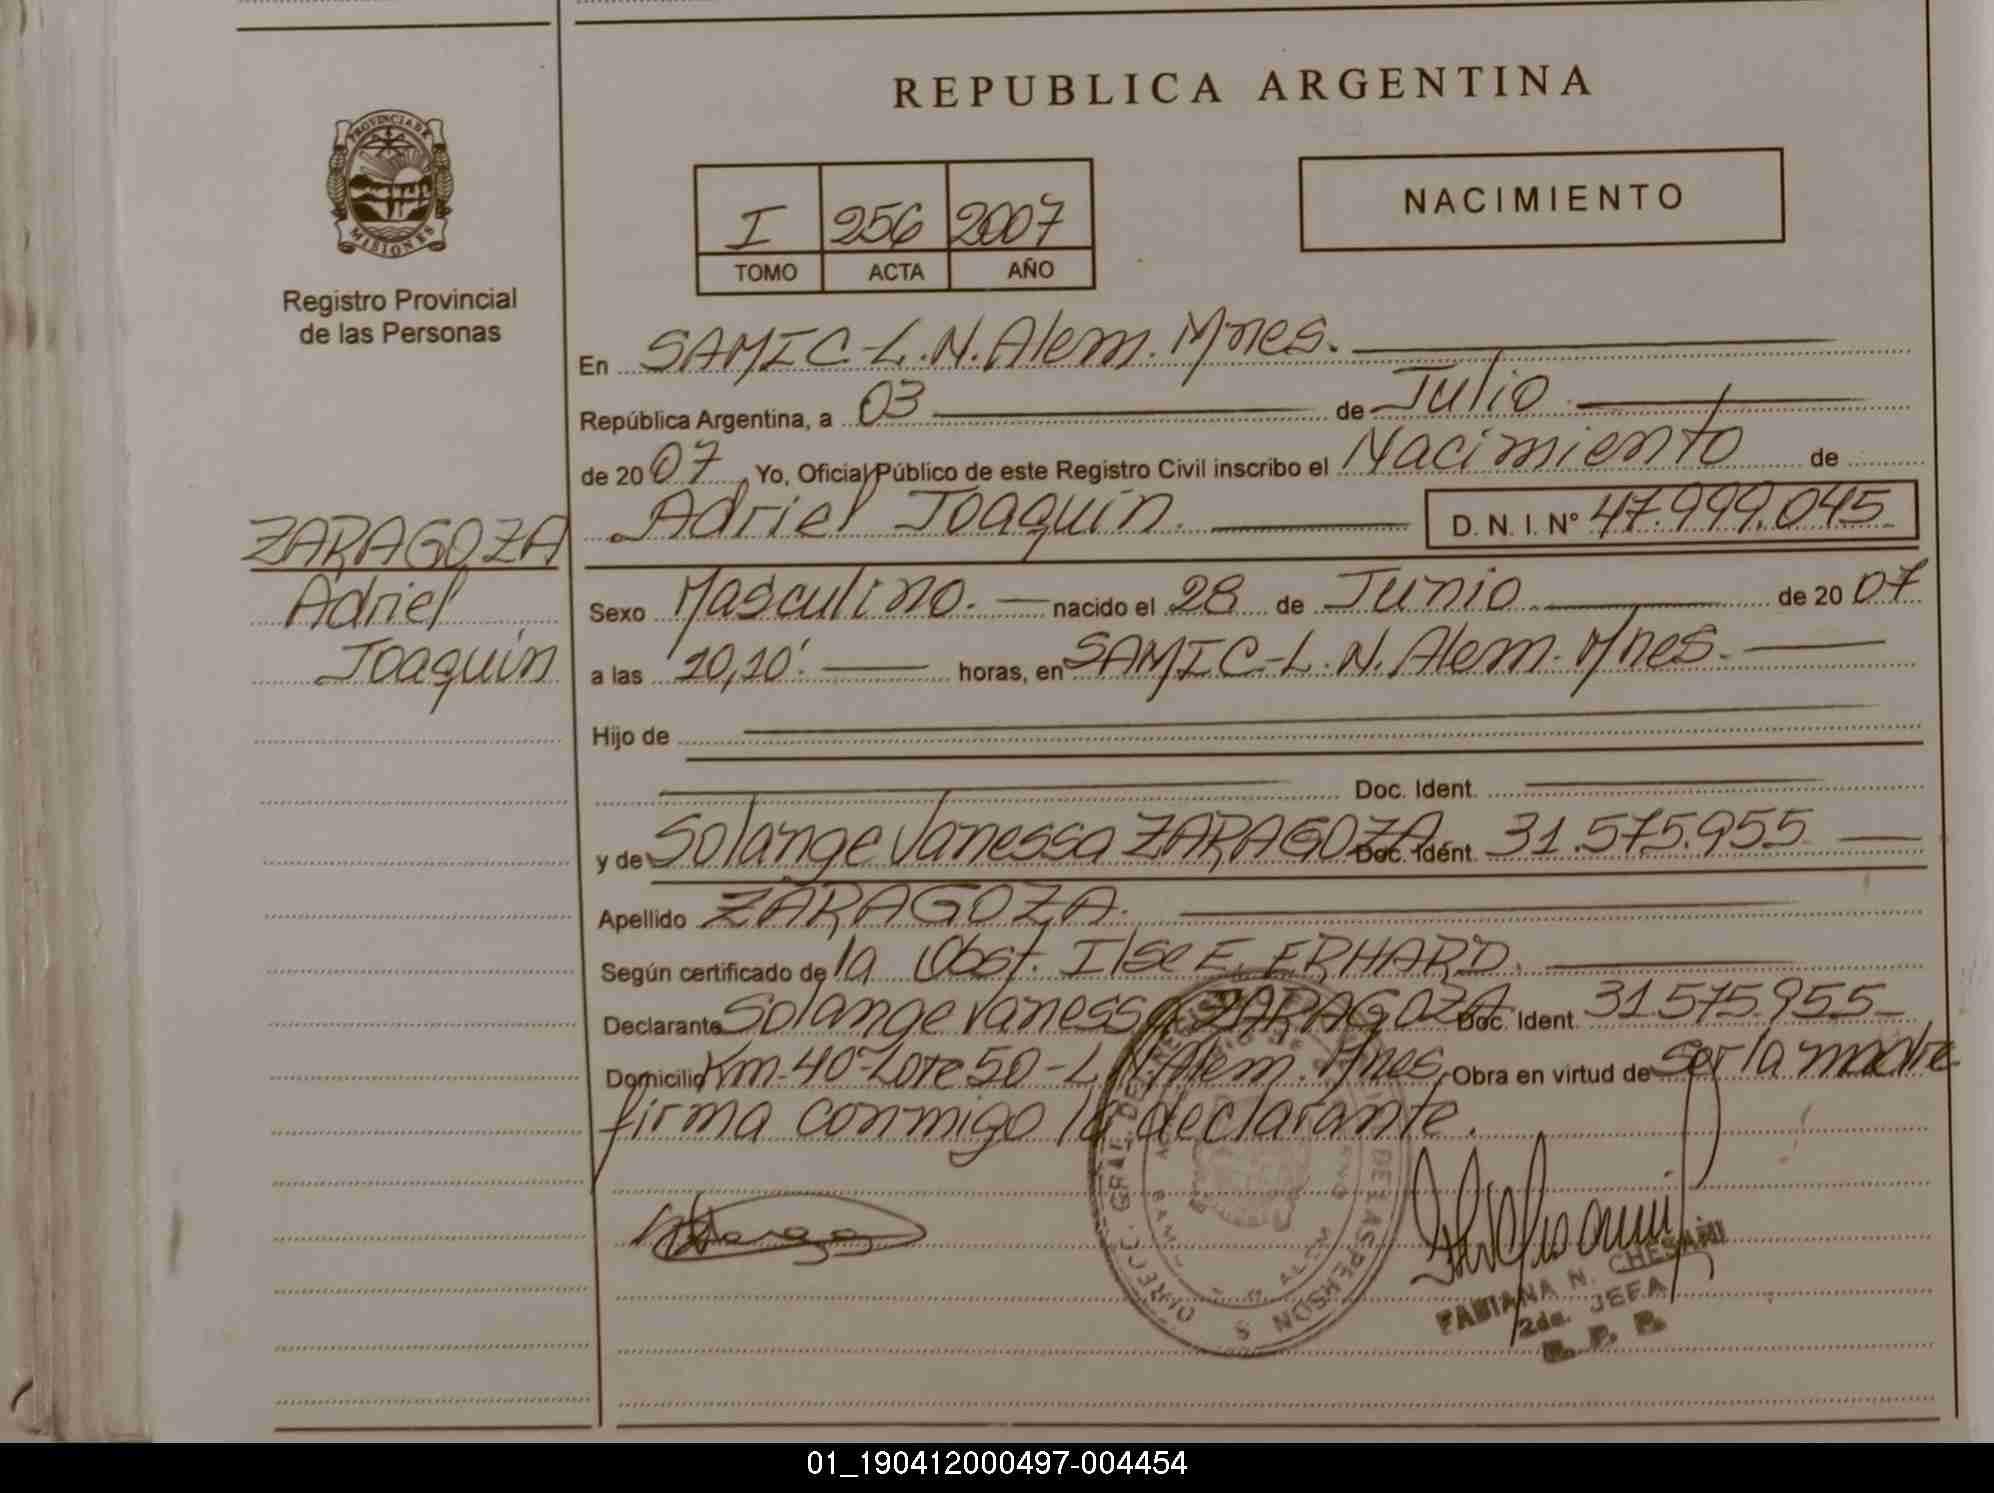 REPUBLICA ARGENTINA
PROVINCIA DE
MISIONES
Registro Provincial
de las Personas
I 256 2007
TOMO ACTA AÑO
NACIMIENTO
En SAMIC-L.N.Alem.Mnes.
República Argentina, a 03 de Julio
de 2007 Yo, Oficial Público de este Registro Civil inscribo el Nacimiento de
Adriel Joaquín. D. N. I. Nº 47.999.045
ZARAGOZA
Adriel
Joaquín
Sexo Masculino. nacido el 28 de Junio de 2007
a las 10,10' horas, en SAMIC-L.N.Alem.Mnes.
Hijo de
Doc. Ident.
y de Solange Vanessa ZARAGOZA Doc. Ident. 31.575.955
Apellido ZARAGOZA.
Según certificado de la Obst. Ilse E. ERHARD.
Declarante Solange Vanessa ZARAGOZA Doc. Ident. 31.575.955
Domicilio Km-40-Lote 50-L.N.Alem.Mnes. Obra en virtud de ser la madre
firma conmigo la declarante.
FABIANA N.
2da. JEFA
R. P. P.
01_190412000497-004454